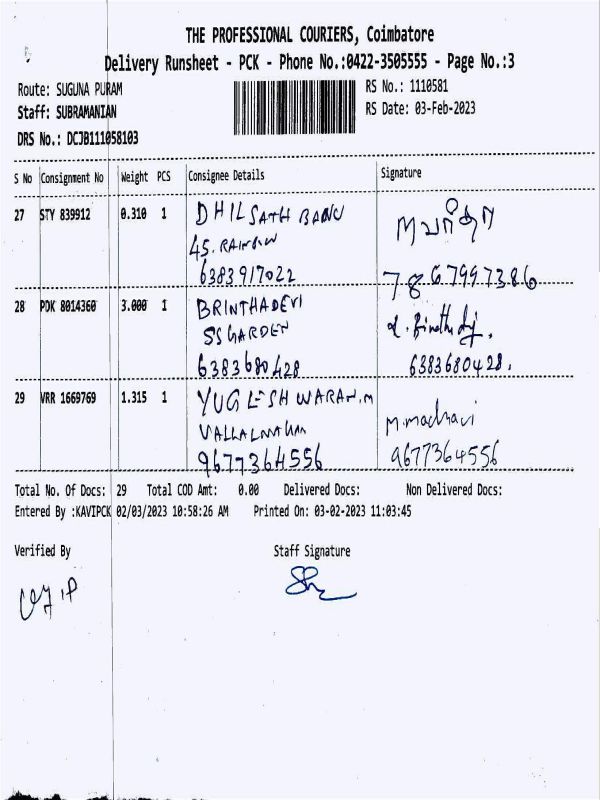 THE PROFESSIONAL COURIERS, Coimbatore
Delivery Runsheet - PCK - Phone No.:0422-3505555 - Page No.:3
Route: SUGUNA PURAM
RS No.: 1110581
Staff: SUBRAMANIAN
RS Date: 03-Feb-2023
DRS No.: DCJB111058103
S No Consignment No Weight PCS Consignee Details Signature
27 STY 839912 0.310 1 DHILSATH BANU
45. RAINBOW
6383917022 7867997386
28 PDK 8014360 3.000 1 BRINTHADEVI
SS GARDEN
6383680428 6383680428.
29 VRR 1669769 1.315 1 YUGLESHWARAN.M
M.madhavi
9677364556 9677364556
Total No. Of Docs: 29 Total COD Amt: 0.00 Delivered Docs: Non Delivered Docs:
Entered By :KAVIPCK 02/03/2023 10:58:26 AM Printed On: 03-02-2023 11:03:45
Verified By Staff Signature